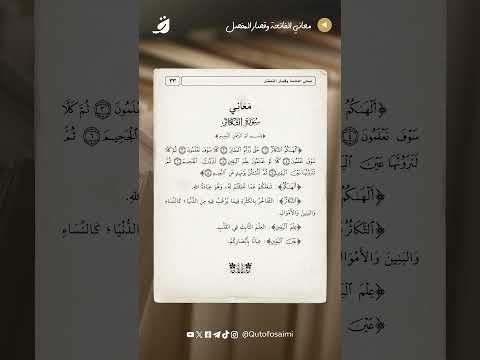 معاني الفاتحة وقصار المفصل
معاني الفاتحة وقصار المفصل ٣٣
مَعَانِي
سُورَةِ التَّكَاثُرِ
بِسْمِ اللَّهِ الرَّحْمَنِ الرَّحِيمِ
﴿أَلْهَىٰكُمُ التَّكَاثُرُ ١ حَتَّىٰ زُرْتُمُ الْمَقَابِرَ ٢ كَلَّا سَوْفَ تَعْلَمُونَ ٣ ثُمَّ كَلَّا
سَوْفَ تَعْلَمُونَ ٤ كَلَّا لَوْ تَعْلَمُونَ عِلْمَ الْيَقِينِ ٥ لَتَرَوُنَّ الْجَحِيمَ ٦ ثُمَّ
لَتَرَوُنَّهَا عَيْنَ الْيَقِينِ ٧ ثُمَّ لَتُسْـَٔلُنَّ يَوْمَئِذٍ عَنِ النَّعِيمِ ٨﴾
﴿أَلْهَىٰكُمُ﴾: شَغَلَكُمْ عَمَّا خُلِقْتُمْ لَهُ، وَهُوَ عِبَادَةُ اللهِ.
﴿التَّكَاثُرُ﴾: التَّفَاخُرُ بِالْكَثْرَةِ فِيمَا يُرْغَبُ فِيهِ مِنَ الدُّنْيَا؛ كَالنِّسَاءِ
وَالبَنِينَ وَالأَمْوَالِ.
﴿عِلْمَ الْيَقِينِ﴾: العِلْمَ الثَّابِتَ فِي القَلْبِ.
﴿عَيْنَ الْيَقِينِ﴾: عِيَانًا بِأَبْصَارِكُمْ.
@Qutofosaimi